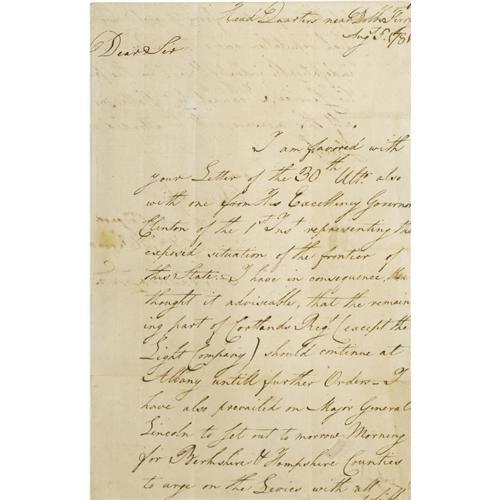 Head Quarters near Dobbs Ferry
Augt. 5. 1781
Dear Sir
I am favored with
your Letter of the 30th Ulto. also
with one from His Excellency Governor
Clinton of the 1st Inst representing the
exposed situation of the frontier of
this State:- I have in consequence,
thought it adviseable, that the remain
ing part of Cortlands Regt (except the
Light Company) should continue at
Albany untill further Orders_ I
have also prevailed on Major General
Lincoln to set out to morrow Morning
for Berkshire & Hampshire Counties
to urge on the Levies with all